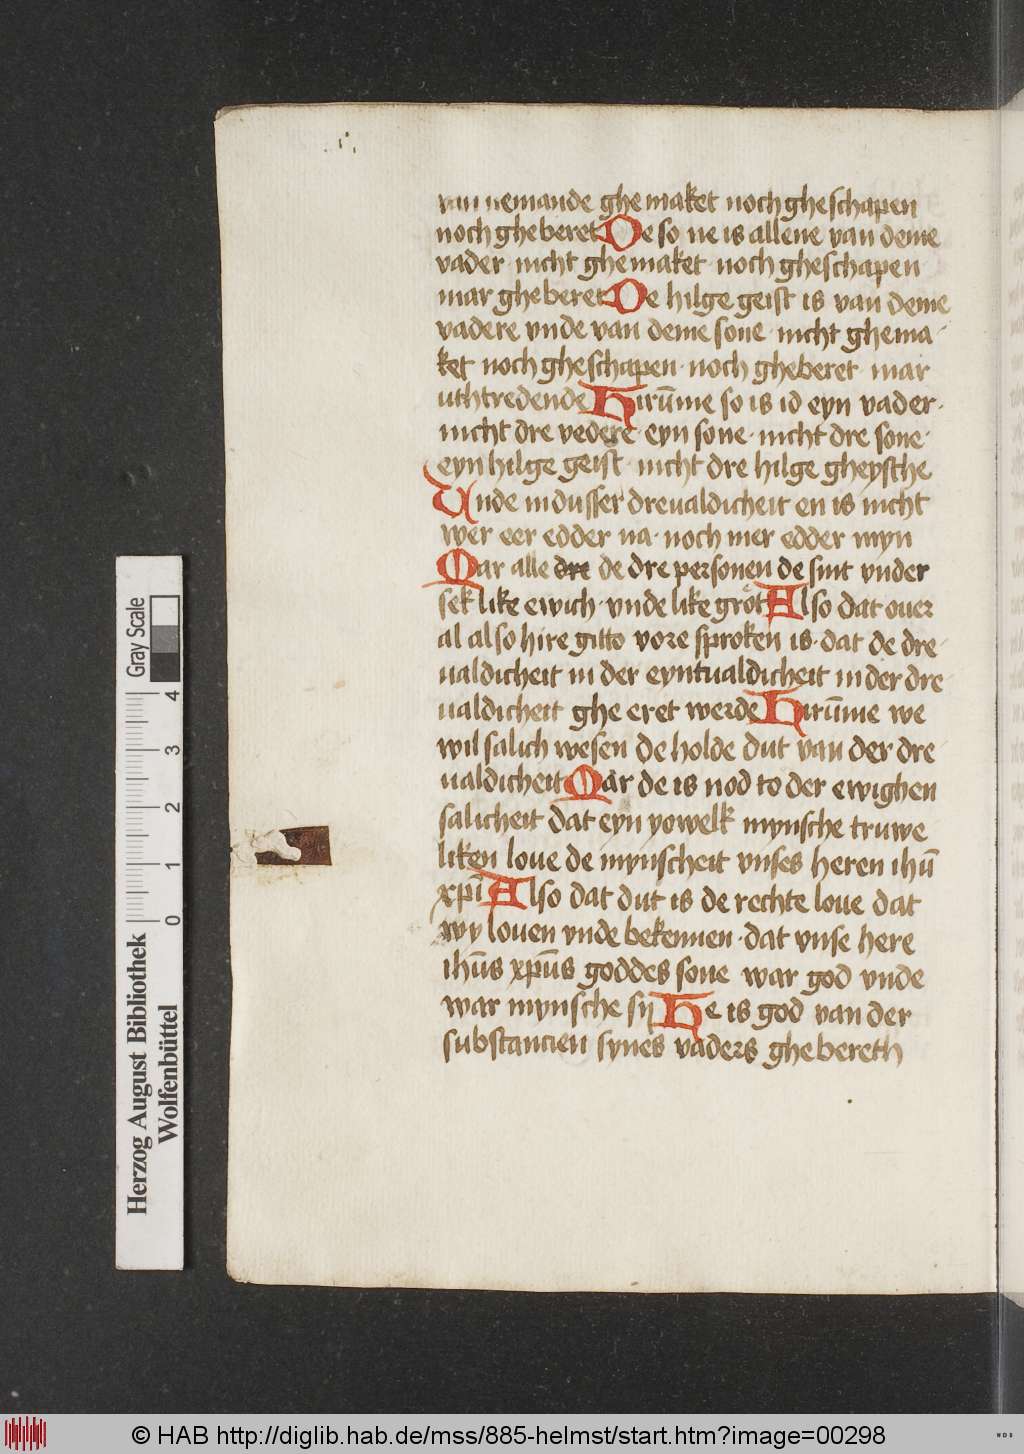 van nemande ghe maket noch ghe schapen
noch ghe beret De so ne is allene van deme
vader · nicht ghe maket · noch ghe schapen
mar ghe beret De hilge geist is van deme
vadere vnde van deme sone · nicht ghe ma·
ket noch ghe schapen · noch ghe beret · mar
uthtredende Hirūme so is id eyn vader ·
nicht dre vedere · eyn sone · nicht dre sone ·
eyn hilge geist · nicht dre hilge gheysthe
Unde in dusser dreualdicheit en is nicht
wer eer edder na · noch mer edder myn
Mar alle dre de dre personen de sint vnder
sek like ewich · vnde like grot Also dat ouer
al also hire gitto vore sproken is · dat de dre·
ualdicheit in der eyntualdicheit in der dre·
ualdicheit ghe eret werde Hirūme we
wil salich wesen de holde dut van der dre·
ualdicheit Mar de is nod to der ewighen
salicheit dat eyn yowelk mynsche truwe·
liken loue de mynscheit vnses heren ihū
xpī Also dat dut is de rechte loue dat
wy louen vnde bekennen · dat vnse here
ihūs xpūs goddes sone war god vnde
war mynsche sij He is god van der
substancien synes vaders ghe bereth
Gray Scale
4 3 2 1 0
Herzog August Bibliothek
Wolfenbüttel
© HAB http://diglib.hab.de/mss/885-helmst/start.htm?image=00298